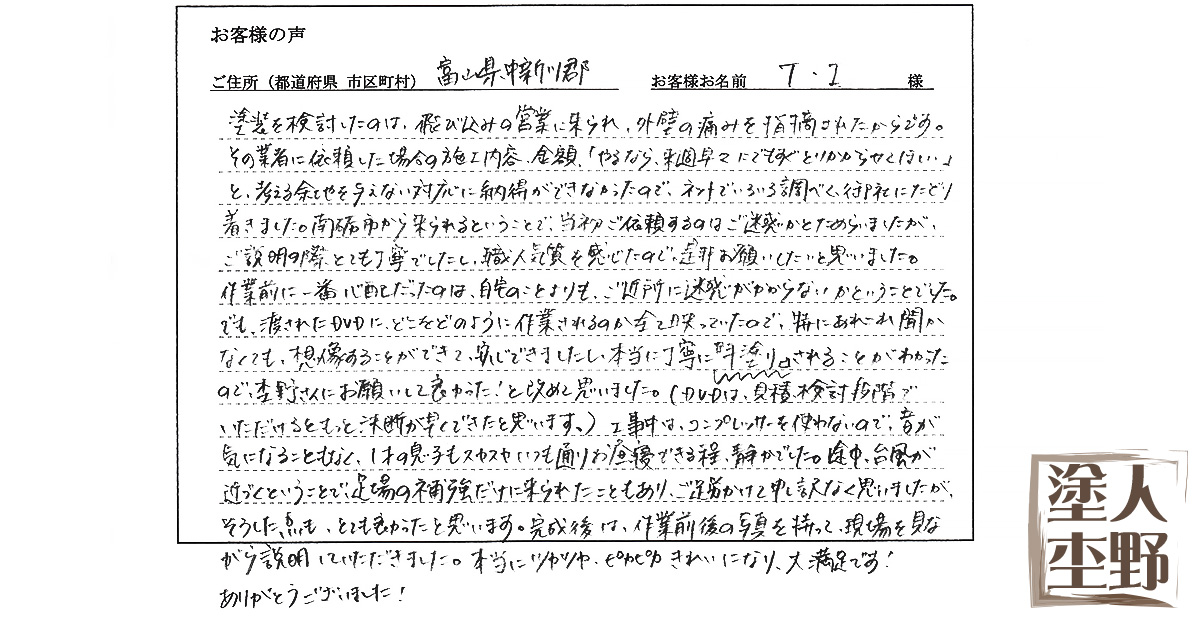 お客様の声
ご住所（都道府県 市区町村） 富山県中新川郡 お客様お名前 T・I 様
塗装を検討したのは、飛び込みの営業に来られ、外壁の痛みを指摘されたからです。
その業者に依頼した場合の施工内容、金額、「やるなら、来週早々にでもすぐとりかからせてほしい」
と、考える余地を与えない対応に納得ができなかったので、ネットでいろいろ調べて、御社にたどり
着きました。南砺市から来られるということで、当初ご依頼するのはご迷惑かとためらいましたが、
ご説明の際、とても丁寧でしたし、職人気質を感じたので、是非お願いしたいと思いました。
作業前に一番心配だったのは、自宅のことよりも、ご近所に迷惑がかからないかということでした。
でも、渡されたDVDに、どこをどのように作業されるのか全て映っていたので、特にあれこれ聞か
なくても、想像することができて、安心できましたし、本当に丁寧に「手塗り」されることがわかった
ので、杢野さんにお願いして良かった！と改めて思いました。（DVDは、見積検討段階で
いただけるともっと決断が早くできたと思います。）工事中は、コンプレッサーを使わないので、音が
気になることもなく、1才の息子もスヤスヤいつも通りお昼寝できる程、静かでした。途中、台風が
近づくということで、足場の補強だけに来られたこともあり、ご足労かけて申し訳なく思いましたが、
そうした点も、とても良かったと思います。完成後は、作業前後の写真を持って、現場を見な
がら説明していただきました。本当にツヤツヤ、ピカピカ きれいになり、大満足です！
ありがとうございました！
塗人
杢野